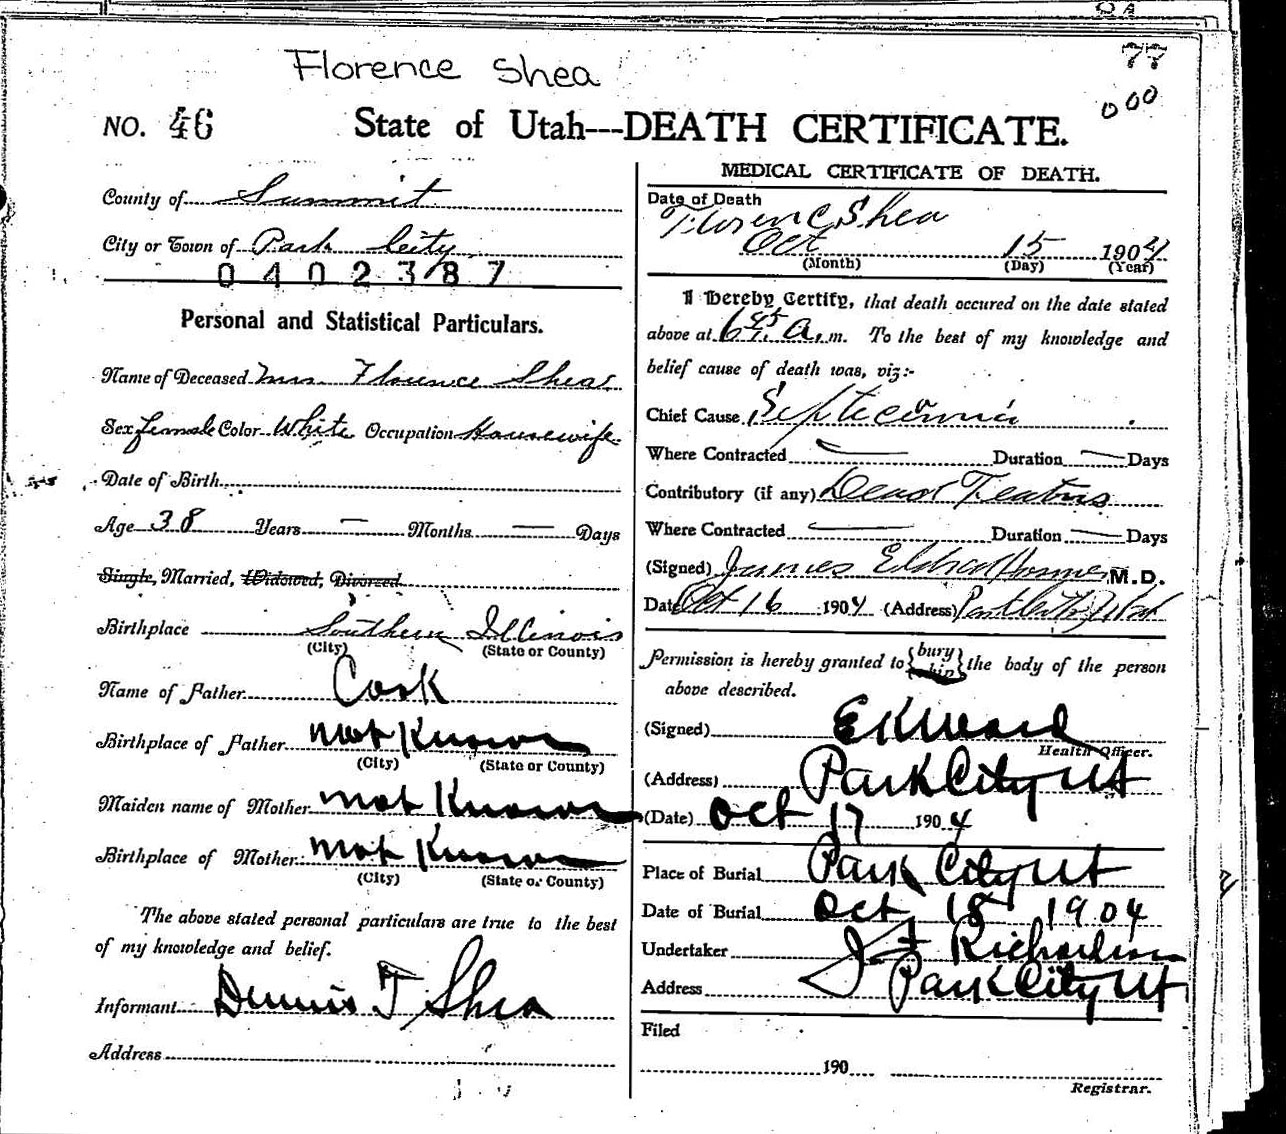 Florence Shea
77
000
NO. 46 State of Utah---DEATH CERTIFICATE.
County of Summit
City or Town of Park City
0402387
Personal and Statistical Particulars.
Name of Deceased Mrs. Florence Shea
Sex female Color White Occupation Housewife
Date of Birth
Age 38 Years — Months — Days
Single, Married, Widowed, Divorced
Birthplace Southern Illinois
(City) (State or County)
Name of Father Cook
Birthplace of Father Not Known
(City) (State or County)
Maiden name of Mother Not Known
Birthplace of Mother Not Known
(City) (State or County)
The above stated personal particulars are true to the best
of my knowledge and belief.
Informant Dennis T Shea
Address
MEDICAL CERTIFICATE OF DEATH.
Date of Death
Florence Shea
Oct 15 1904
(Month) (Day) (Year)
I Hereby Certify, that death occured on the date stated
above at 6 45 a. m. To the best of my knowledge and
belief cause of death was, viz:-
Chief Cause Septecaemia
Where Contracted — Duration — Days
Contributory (if any) Dead
Where Contracted — Duration — Days
(Signed) James M.D.
Date Oct 16 1904 (Address)
Permission is hereby granted to {bury ship} the body of the person
above described.
(Signed) E K Ward
Health Officer.
(Address) Park City Ut
(Date) Oct 17 1904
Place of Burial Park City Ut
Date of Burial Oct 18 1904
Undertaker Richardson
Address Park City Ut
Filed
190
Registrar.